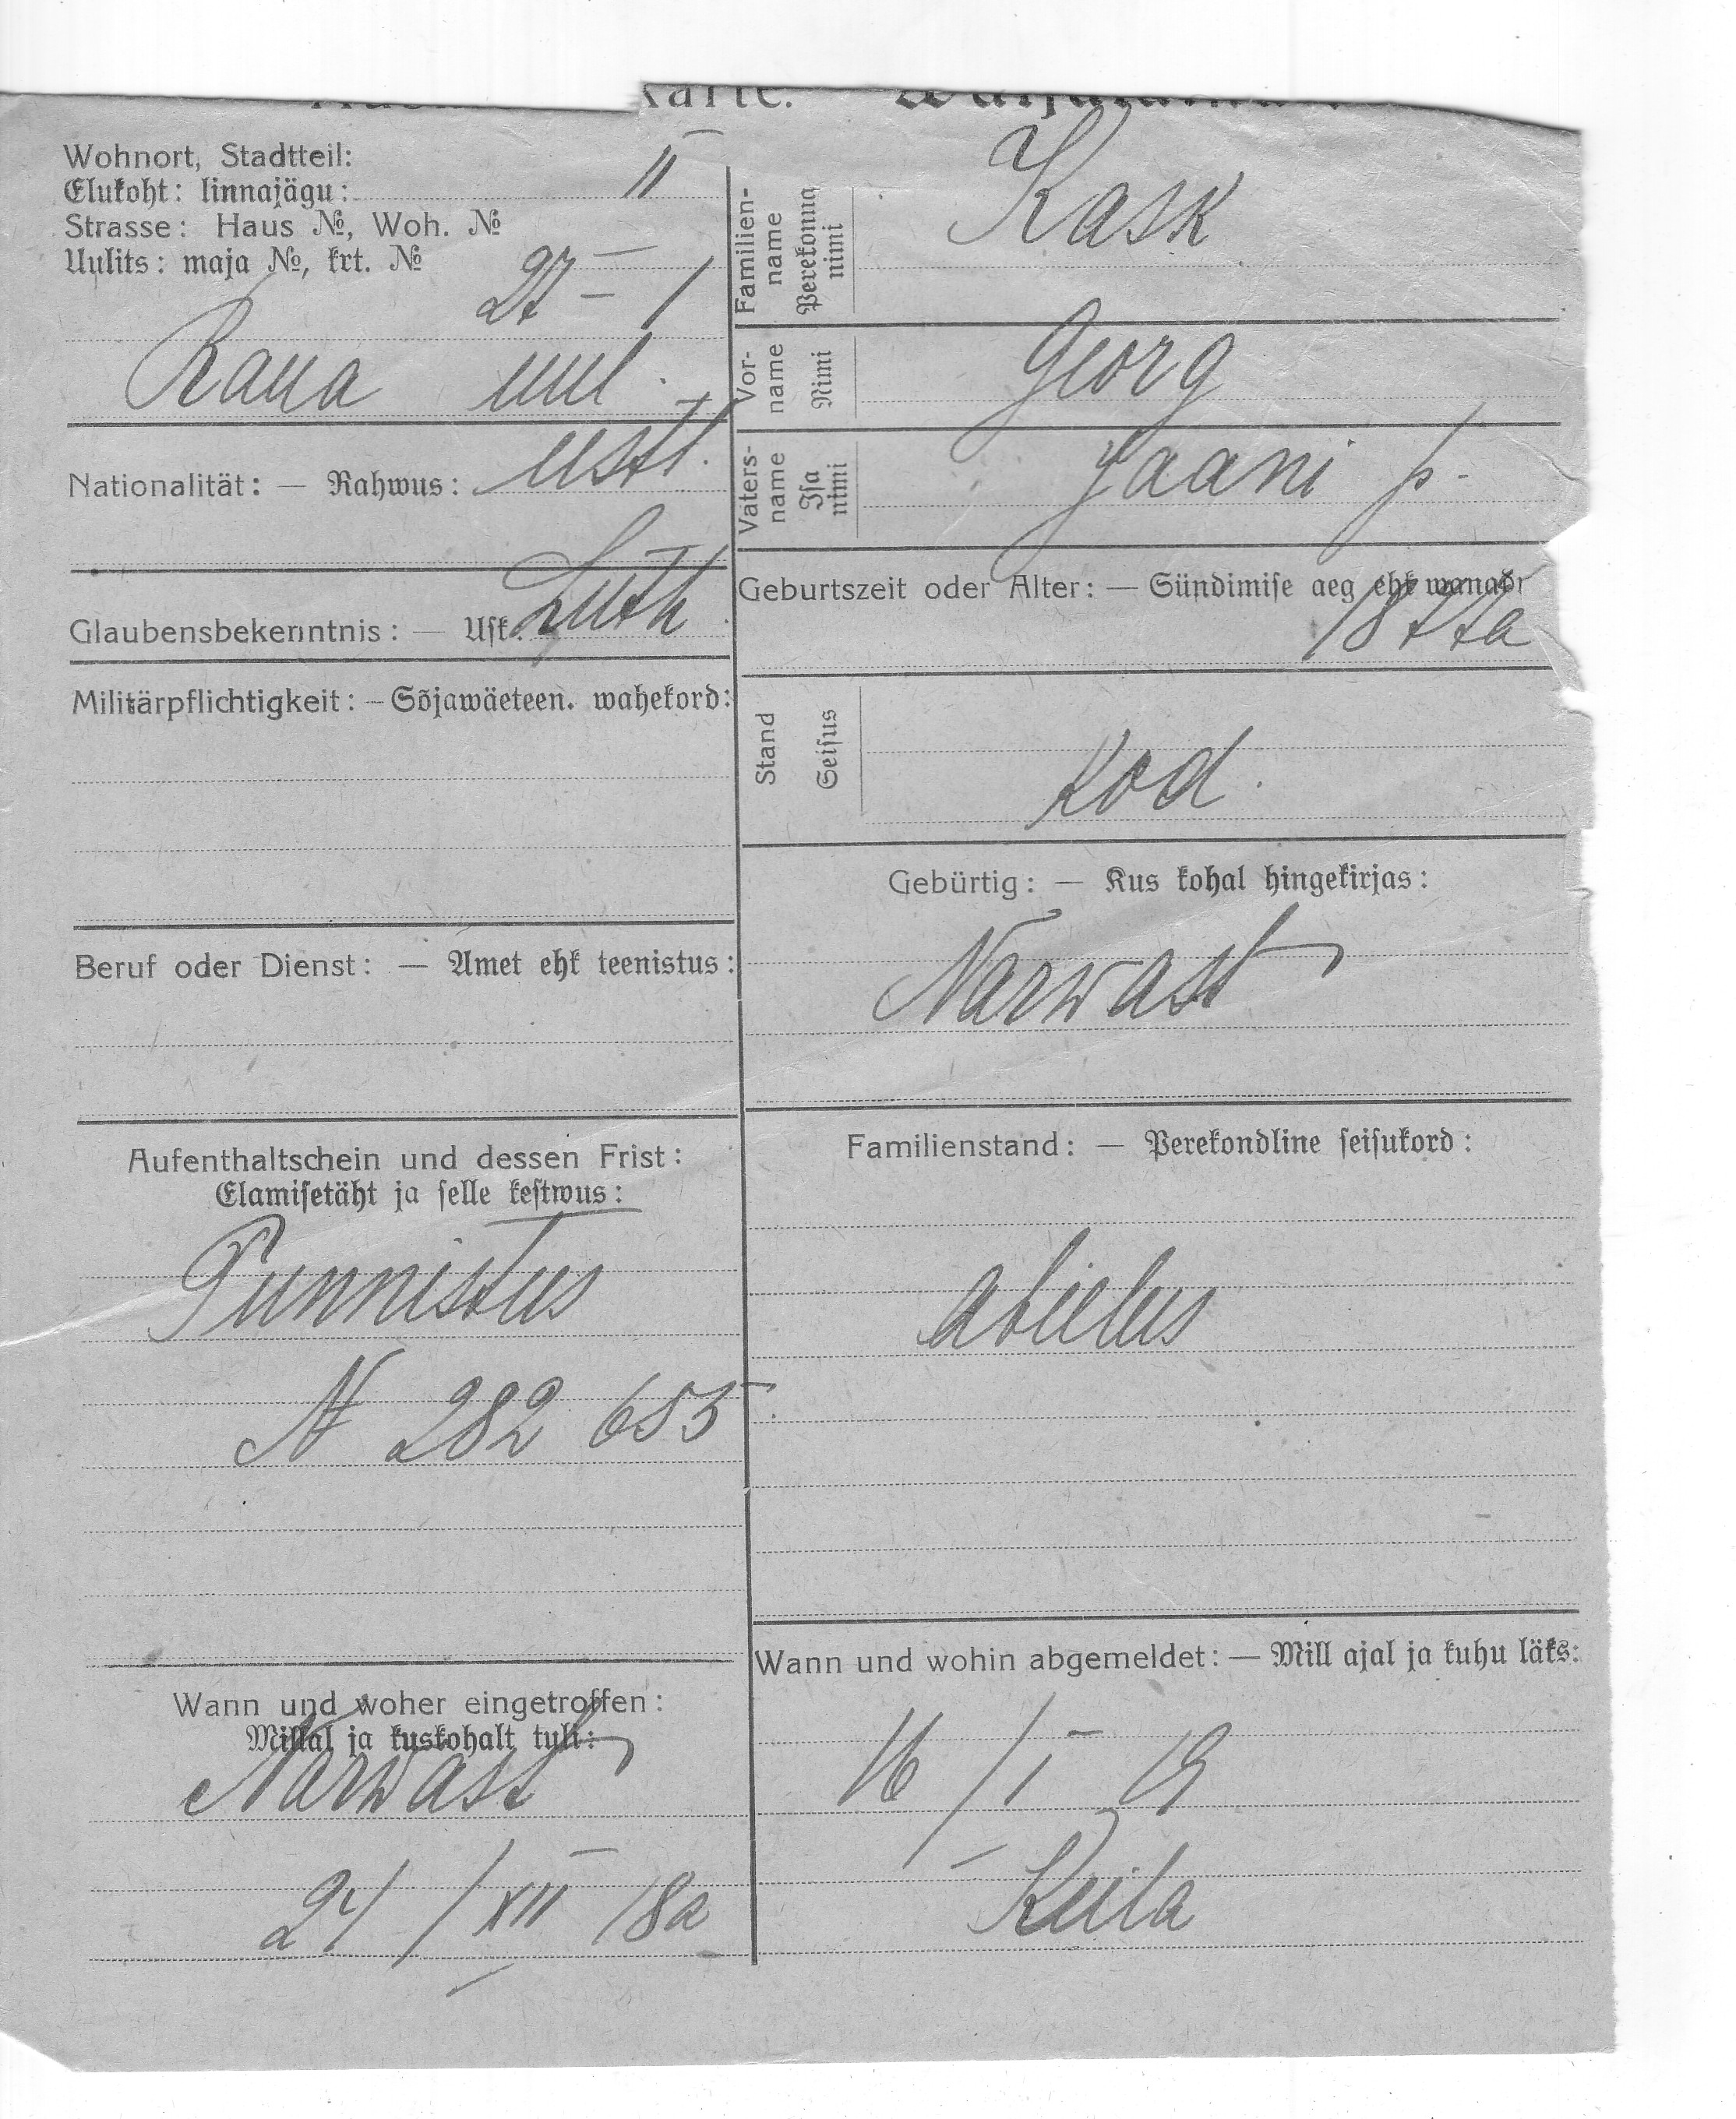 Karte.
Wohnort, Stadtteil:
Elukoht: linnajägu: II
Strasse: Haus №, Woh. №
Uulits: maja №, krt. №
27 – 1
Raua uul.
Nationalität: — Rahwus: eestl.
Glaubensbekenntnis: — Usk. Luth.
Militärpflichtigkeit: — Sõjawäeteen. wahekord:
Beruf oder Dienst: — Amet ehk teenistus:
Aufenthaltschein und dessen Frist:
Elamisetäht ja selle kestwus:
Tunnistus
N 282 655
Wann und woher eingetroffen:
Millal ja kuskohalt tuli:
Narwast
24/XII 18a
Familien-
name
Perekonna
nimi
Kask
Vor-
name
Nimi
Georg
Vaters-
name
Isa
nimi
Jaani p.
Geburtszeit oder Alter: — Sündimise aeg ehk wanadus
1877a
Stand
Seisus
kod.
Gebürtig: — Kus kohal hingekirjas:
Narwast
Familienstand: — Perekondline seisukord:
abielus
Wann und wohin abgemeldet: — Mill ajal ja kuhu läks:
16/I 19
Keila